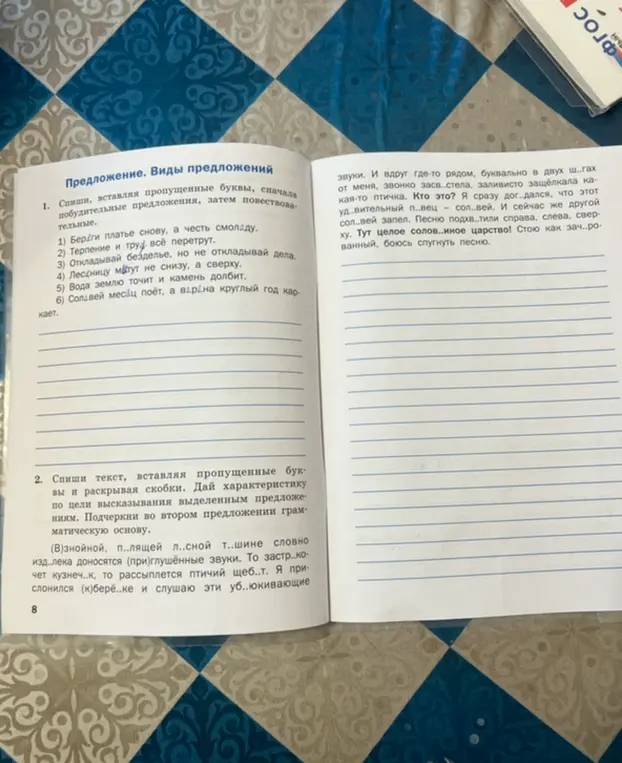 Предложение. Виды предложений
1. Спиши, вставляя пропущенные буквы, сначала
побудительные предложения, затем повествова-
тельные.
1) Береги платье снову, а честь смолоду.
2) Терпение и труд всё перетрут.
3) Откладывай безделье, но не откладывай дела.
4) Лестницу метут не снизу, а сверху.
5) Вода землю точит и камень долбит.
6) Соловей месяц поёт, а ворона круглый год кар-
кает.
2. Спиши текст, вставляя пропущенные бук-
вы и раскрывая скобки. Дай характеристику
по цели высказывания выделенным предложе-
ниям. Подчеркни во втором предложении грам-
матическую основу.
(В)знойной, п..лящей л..сной т..шине словно
изд..лека доносятся (при)глушённые звуки. То застр..ко-
чет кузнеч..к, то рассыплется птичий щеб..т. Я при-
слонился (к)берё..ке и слушаю эти уб..юкивающие
8
звуки. И вдруг где-то рядом, буквально в двух ш..гах
от меня, звонко засв..стела, заливисто защёлкала ка-
кая-то птичка. Кто это? Я сразу дог..дался, что этот
уд..вительный п..вец – сол..вей. И сейчас же другой
сол..вей запел. Песню подхв..тили справа, слева, свер-
ху. Тут целое солов..иное царство! Стою как зач..ро-
ванный, боюсь спугнуть песню.
ФГОС